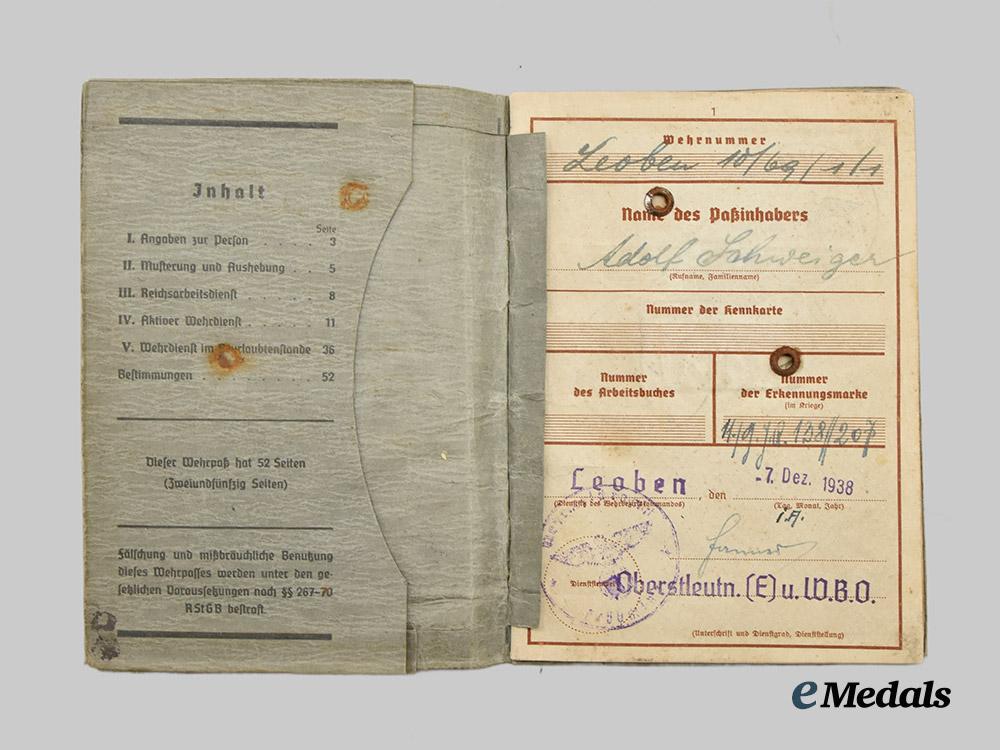 Inhalt
Seite
I. Angaben zur Person . . . . . 3
II. Musterung und Aushebung . . 5
III. Reichsarbeitsdienst . . . . . . 8
IV. Aktiver Wehrdienst . . . . . . 11
V. Wehrdienst im Beurlaubtenstande 36
Bestimmungen . . . . . . . . . 52
Dieser Wehrpaß hat 52 Seiten
(Zweiundfünfzig Seiten)
Fälschung und mißbräuchliche Benutzung
dieses Wehrpasses werden unter den ge-
setzlichen Voraussetzungen nach §§ 267-70
RStGB bestraft.
1
Wehrnummer
Leoben 10/69/1/1
Name des Paßinhabers
Adolf Schweiger
(Rufname, Familienname)
Nummer der Kennkarte
Nummer
des Arbeitsbuches
Nummer
der Erkennungsmarke
(im Kriege)
138/207
Leoben, den -7. Dez. 1938
(Dienstsitz des Wehrbezirkskommandos) (Tag, Monat, Jahr)
i.A.
Oberstleutn. (E) u. W.B.O.
(Unterschrift und Dienstgrad, Dienststellung)
eMedals